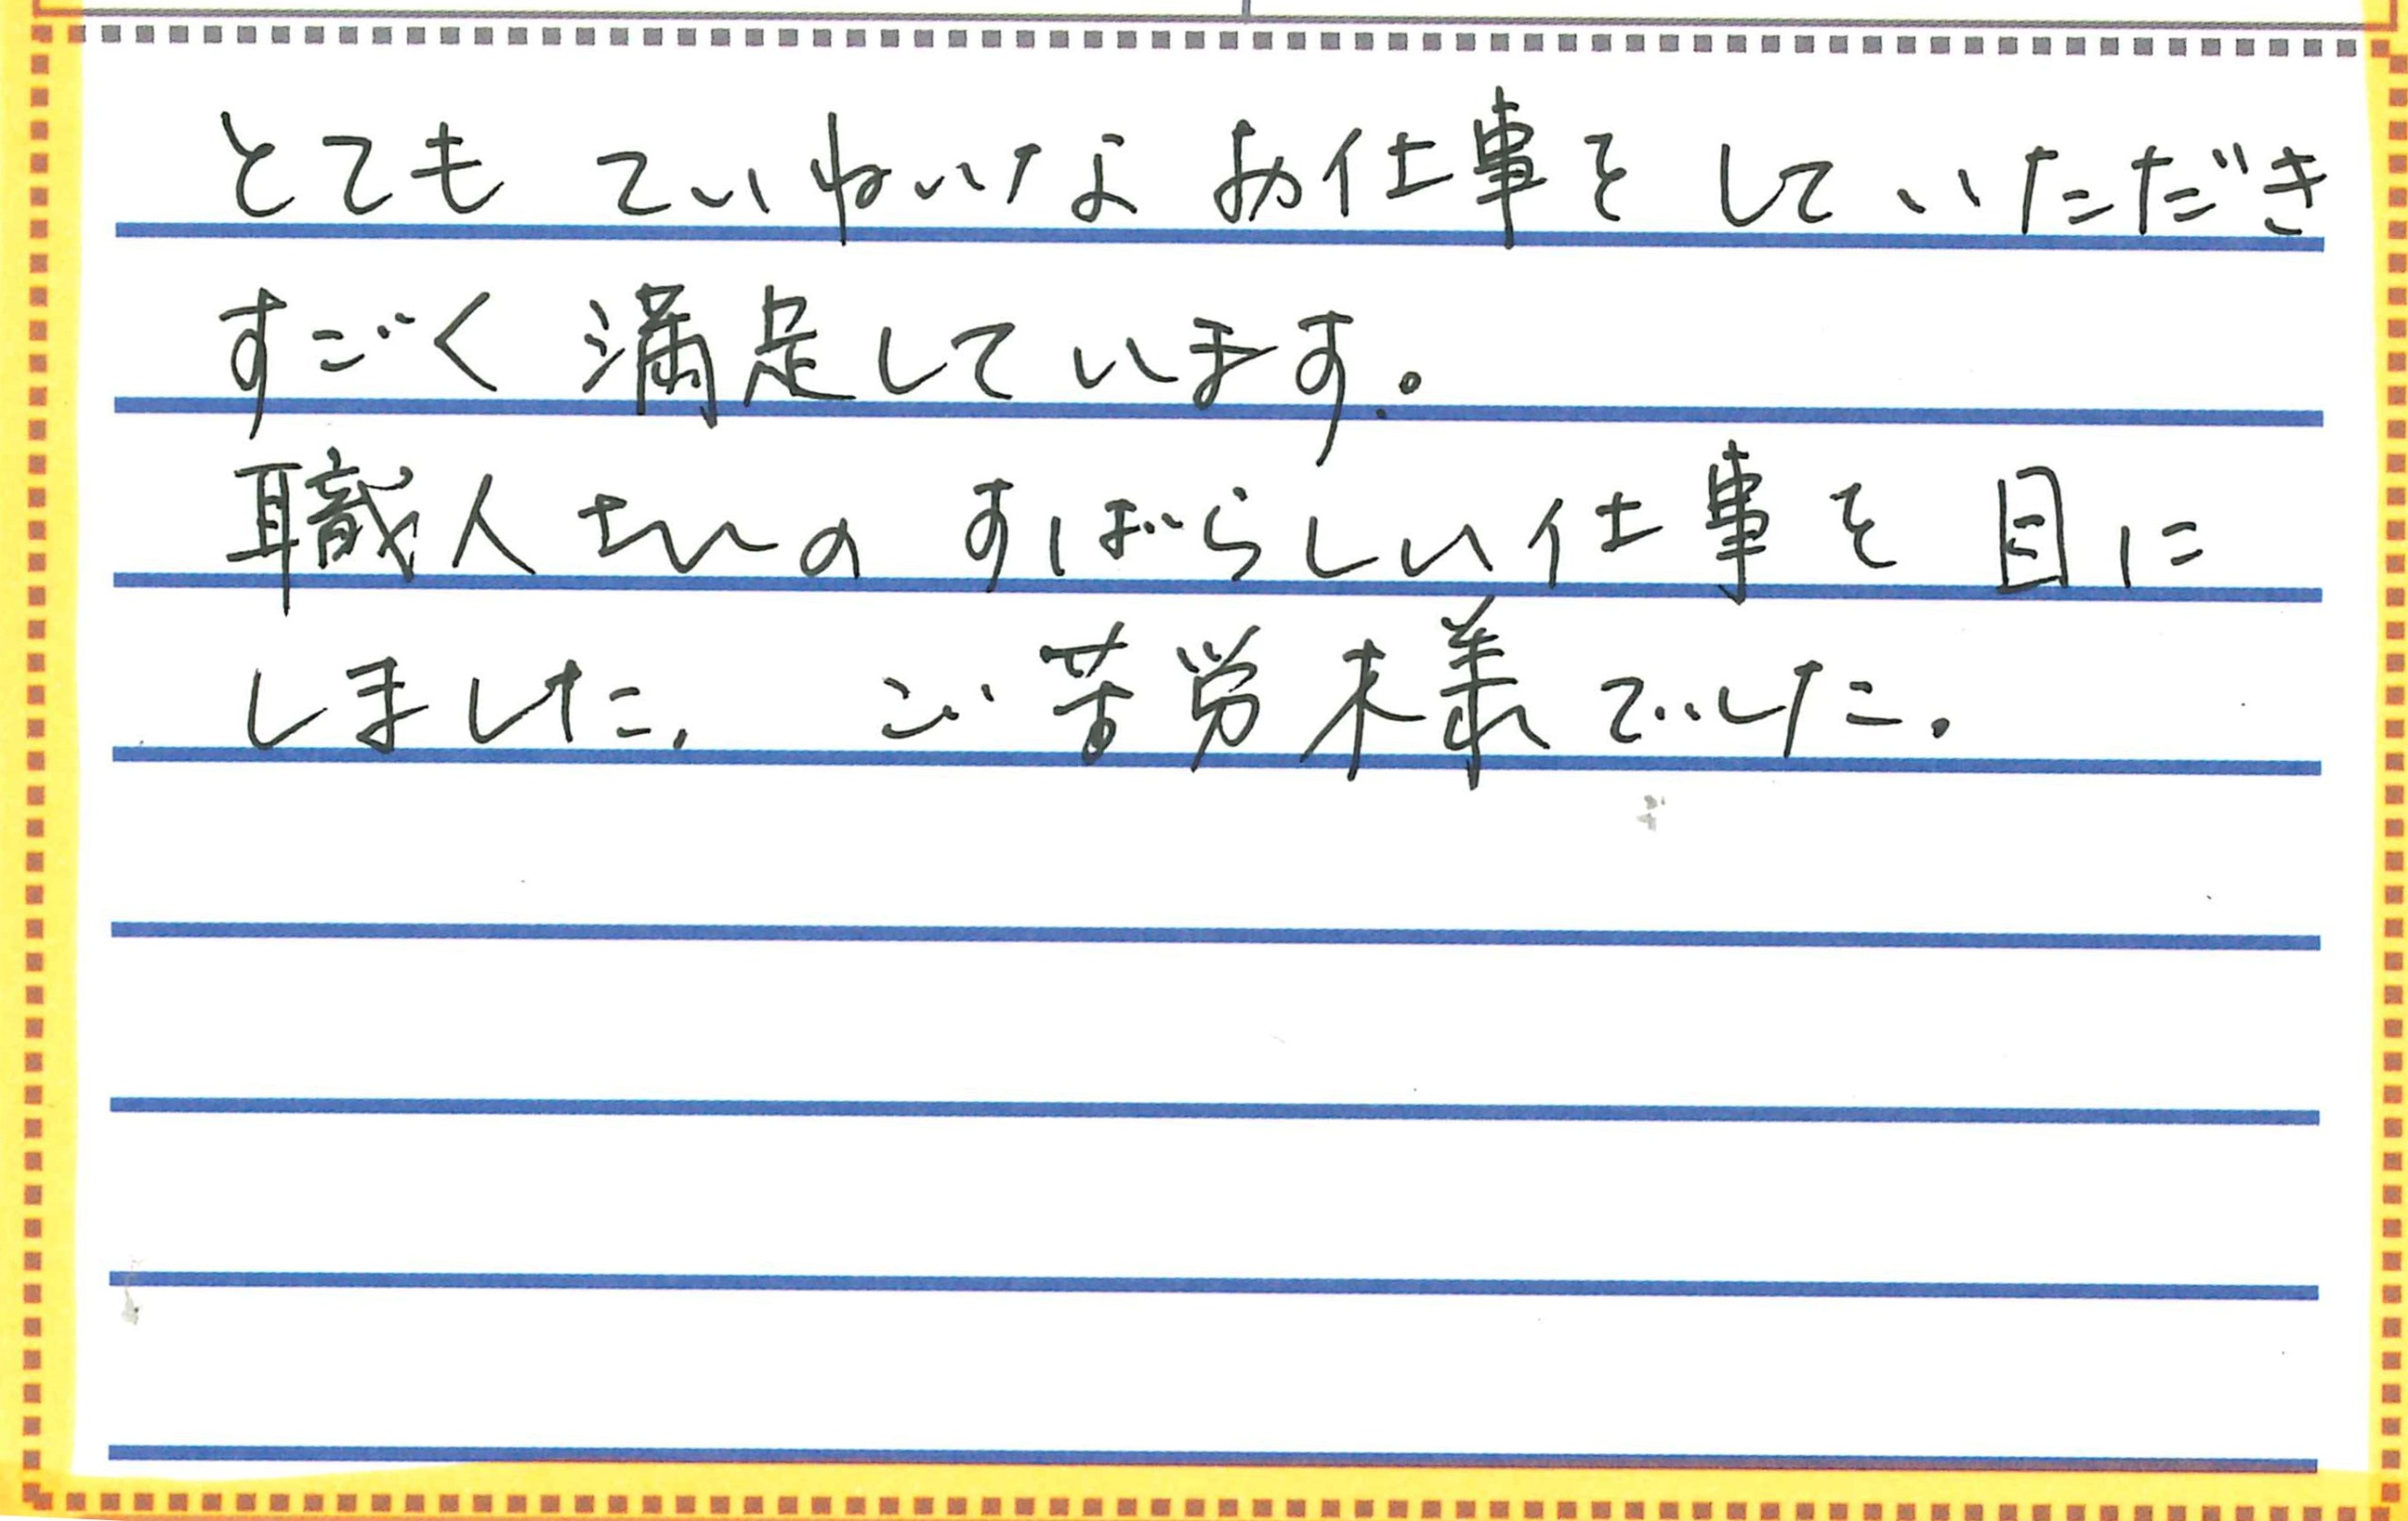 とても ていねいな お仕事を していただき
すごく 満足しています。
職人さんの すばらしい仕事を 目に
しました. ご苦労様でした.